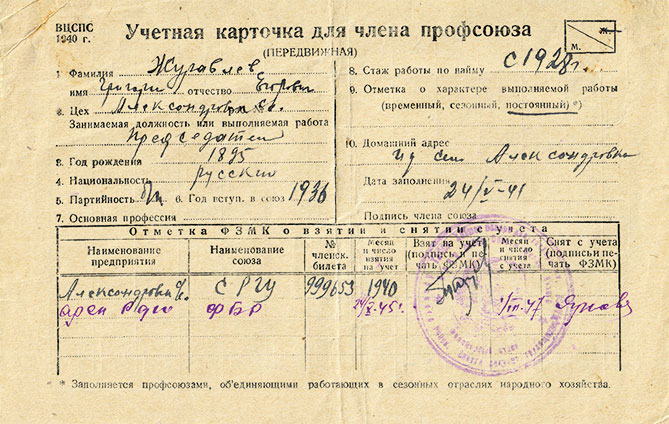 ВЦСПС
1940 г.
Учетная карточка для члена профсоюза
(ПЕРЕДВИЖНАЯ)
М. Ж.
1 Фамилия Журавлев
имя Григорий отчество Егорович
2. Цех Александровка
Занимаемая должность или выполняемая работа
Председатель
3. Год рождения 1895
4. Национальность русский
5. Партийность б/п 6. Год вступ. в союз 1936
7. Основная профессия
8. Стаж работы по найму с 1928 г.
9. Отметка о характере выполняемой работы
(временный, сезонный, постоянный) *)
10. Домашний адрес
село Александровка
Дата заполнения
24/V-41
Подпись члена союза
Отметка ФЗМК о взятии и снятии с учета
Наименование предприятия
Наименование союза
№ членск. билета
Месяц и число взятия на учет
Взят на учет (подпись и печать ФЗМК)
Месяц и число снятия с учета
Снят с учета (подпись и печать ФЗМК)
СРГУ 999653 1940
* Заполняется профсоюзами, об'единяющими работающих в сезонных отраслях народного хозяйства.